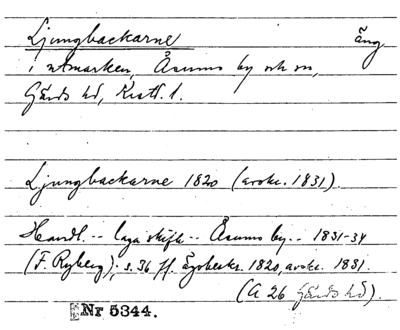 Ljungbackarne äng
i utmarken, Åsums by och sn,
Gärds hd, Krstd. l.
Ljungbackarne 1820 (avskr. 1831).
Handl. -- laga skifte -- Åsums by -- 1831-34
(F. Ryberg); s. 36 ff. Ägobeskr. 1820, avskr. 1831.
(A 26 Gärds hd).
Nr 5344.